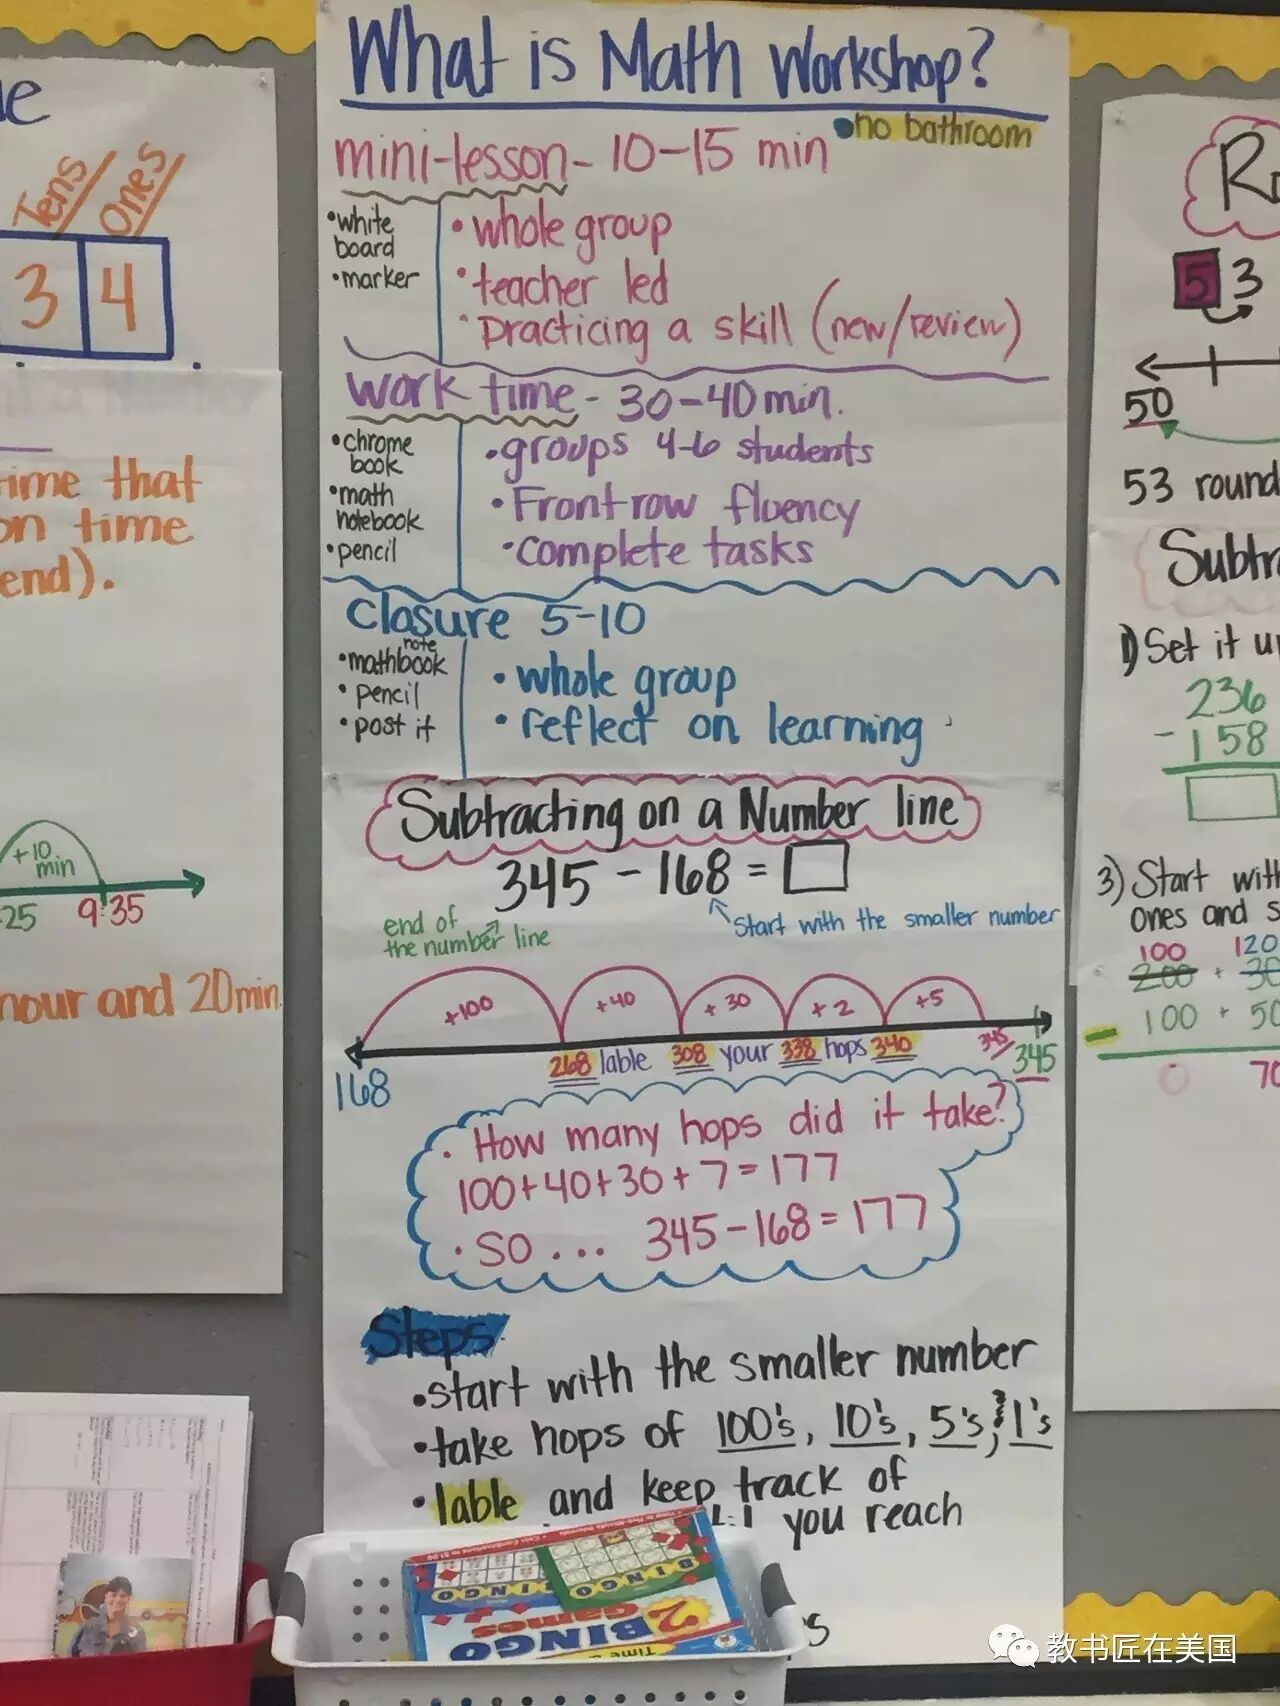 What is Math Workshop?
no bathroom
mini-lesson - 10-15 min
•white
board
•marker
•whole group
•teacher led
•practicing a skill (new/review)
work time - 30-40 min.
•chrome
book
•math
notebook
•pencil
•groups 4-6 students
•Front row fluency
•complete tasks
Closure 5-10
note
•mathbook
•pencil
•post it
•whole group
•reflect on learning
Subtracting on a Number line
345 - 168 =
end of
the number line
Start with the smaller number
+100 +40 +30 +2 +5
268 lable 308 your 338 hops 340 345
168 345
•How many hops did it take?
100+40+30+7=177
•SO... 345-168=177
Steps
•start with the smaller number
•take hops of 100's, 10's, 5's, 1's
•lable and keep track of
you reach
Tens Ones
3 4
time that
on time
end).
+10
min
25 9:35
hour and 20min.
5 3
50
53 round
1) Set it u
236
- 158
3) Start with
ones and s
100 120
200 + 30
100 + 50
0 70
BINGO BINGO
2 Games
BINGO
Time
教书匠在美国